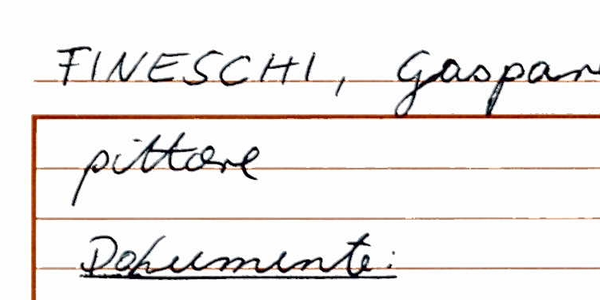 FINESCHI, Gaspar
pittore
Dokumente: